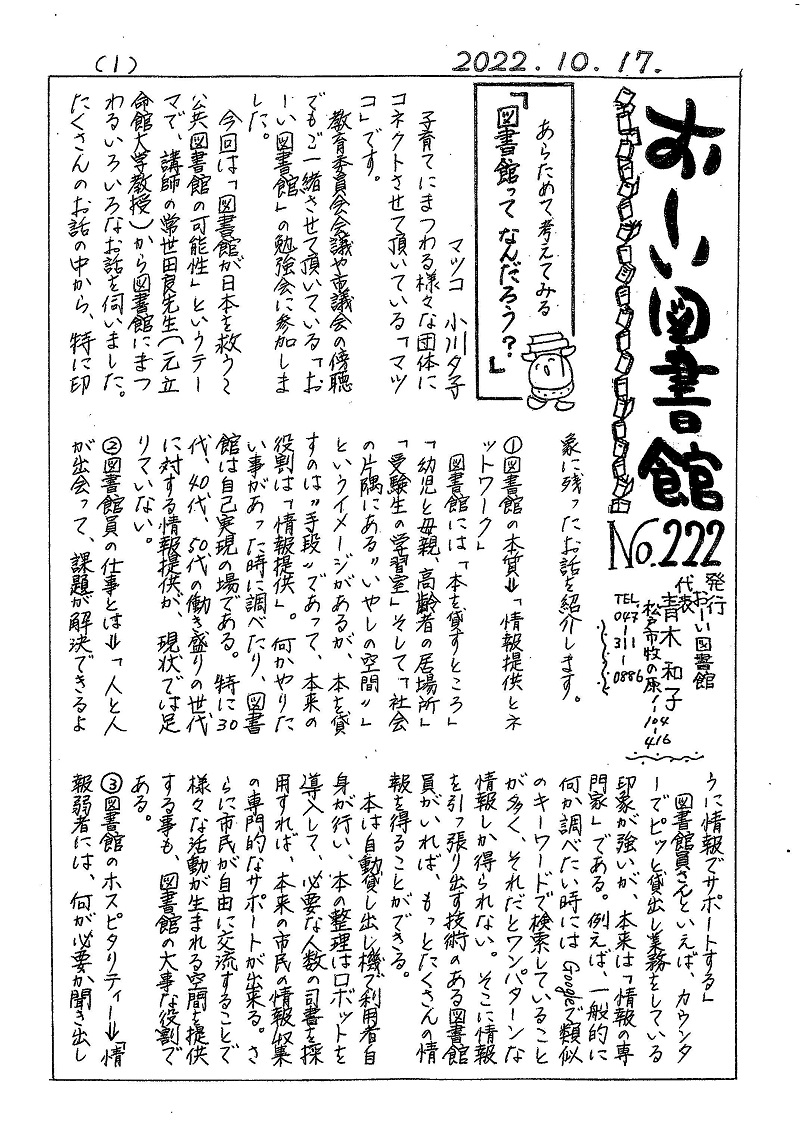 (1)
2022.10.17.
おーい図書館
No.222
発行
おーい図書館
代表
青木和子
松戸市牧の原1-104-416
TEL
047-
311-
0886
あらためて考えてみる
「図書館って なんだろう？」
マツコ 小川夕子
子育てにまつわる様々な団体に
コネクトさせて頂いている「マツ
コ」です。
教育委員会会議や市議会の傍聴
でもご一緒させて頂いている「お
ーい図書館」の勉強会に参加しま
した。
今回は「図書館が日本を救う〜
公共図書館の可能性」というテー
マで、講師の常世田良先生(元立
命館大学教授)から図書館にまつ
わるいろいろなお話を伺いました。
たくさんのお話の中から、特に印
象に残ったお話を紹介します。
①図書館の本質⇒「情報提供とネ
ットワーク」
図書館には「本を貸すところ」
「幼児と母親、高齢者の居場所」
「受験生の学習室」そして「社会
の片隅にある〝いやしの空間〟」
というイメージがあるが、本を貸
すのは〝手段〟であって、本来の
役割は「情報提供」。何かやりた
い事があった時に調べたり、図書
館は自己実現の場である。特に30
代、40代、50代の働き盛りの世代
に対する情報提供が、現状では足
りていない。
②図書館員の仕事とは⇒「人と人
が出会って、課題が解決できるよ
うに情報でサポートする」
図書館員さんといえば、カウンタ
ーでピッと貸出し業務をしている
印象が強いが、本来は「情報の専
門家」である。例えば、一般的に
何か調べたい時にはGoogleで類似
のキーワードで検索していること
が多く、それだとワンパターンな
情報しか得られない。そこに情報
を引っ張り出す技術のある図書館
員がいれば、もっとたくさんの情
報を得ることができる。
本は自動貸し出し機で利用者自
身が行い、本の整理はロボットを
導入して、必要な人数の司書を採
用すれば、本来の市民の情報収集
の専門的なサポートが出来る。さ
らに市民が自由に交流することで
様々な活動が生まれる空間を提供
する事も、図書館の大事な役割で
ある。
③図書館のホスピタリティー⇒「情
報弱者には、何が必要か聞き出し